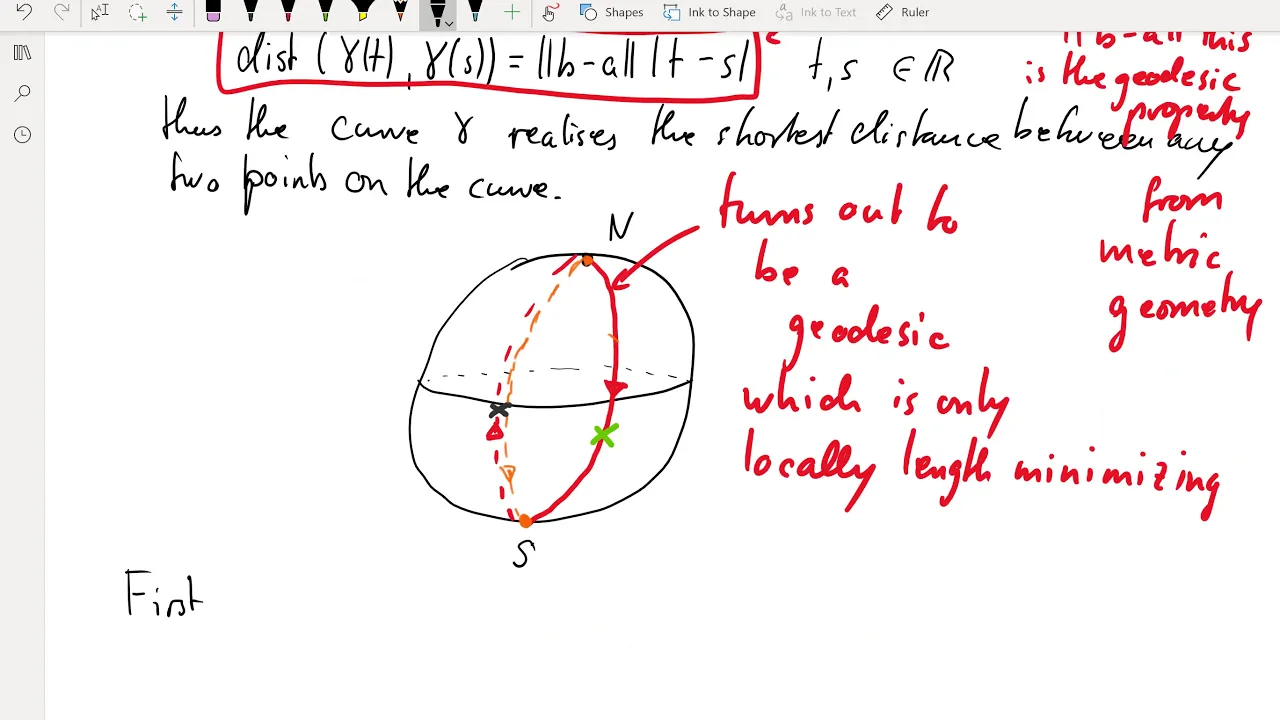 Shapes
Ink to Shape
Ink to Text
Ruler
dist (γ(t), γ(s)) = ||b-a|| |t-s| t,s ∈ ℝ
||b-a|| this
is the geodesic
property
from
metric
geometry
thus the curve γ realises the shortest distance between any
two points on the curve.
N
turns out to
be a
geodesic
which is only
locally length minimizing
S
First